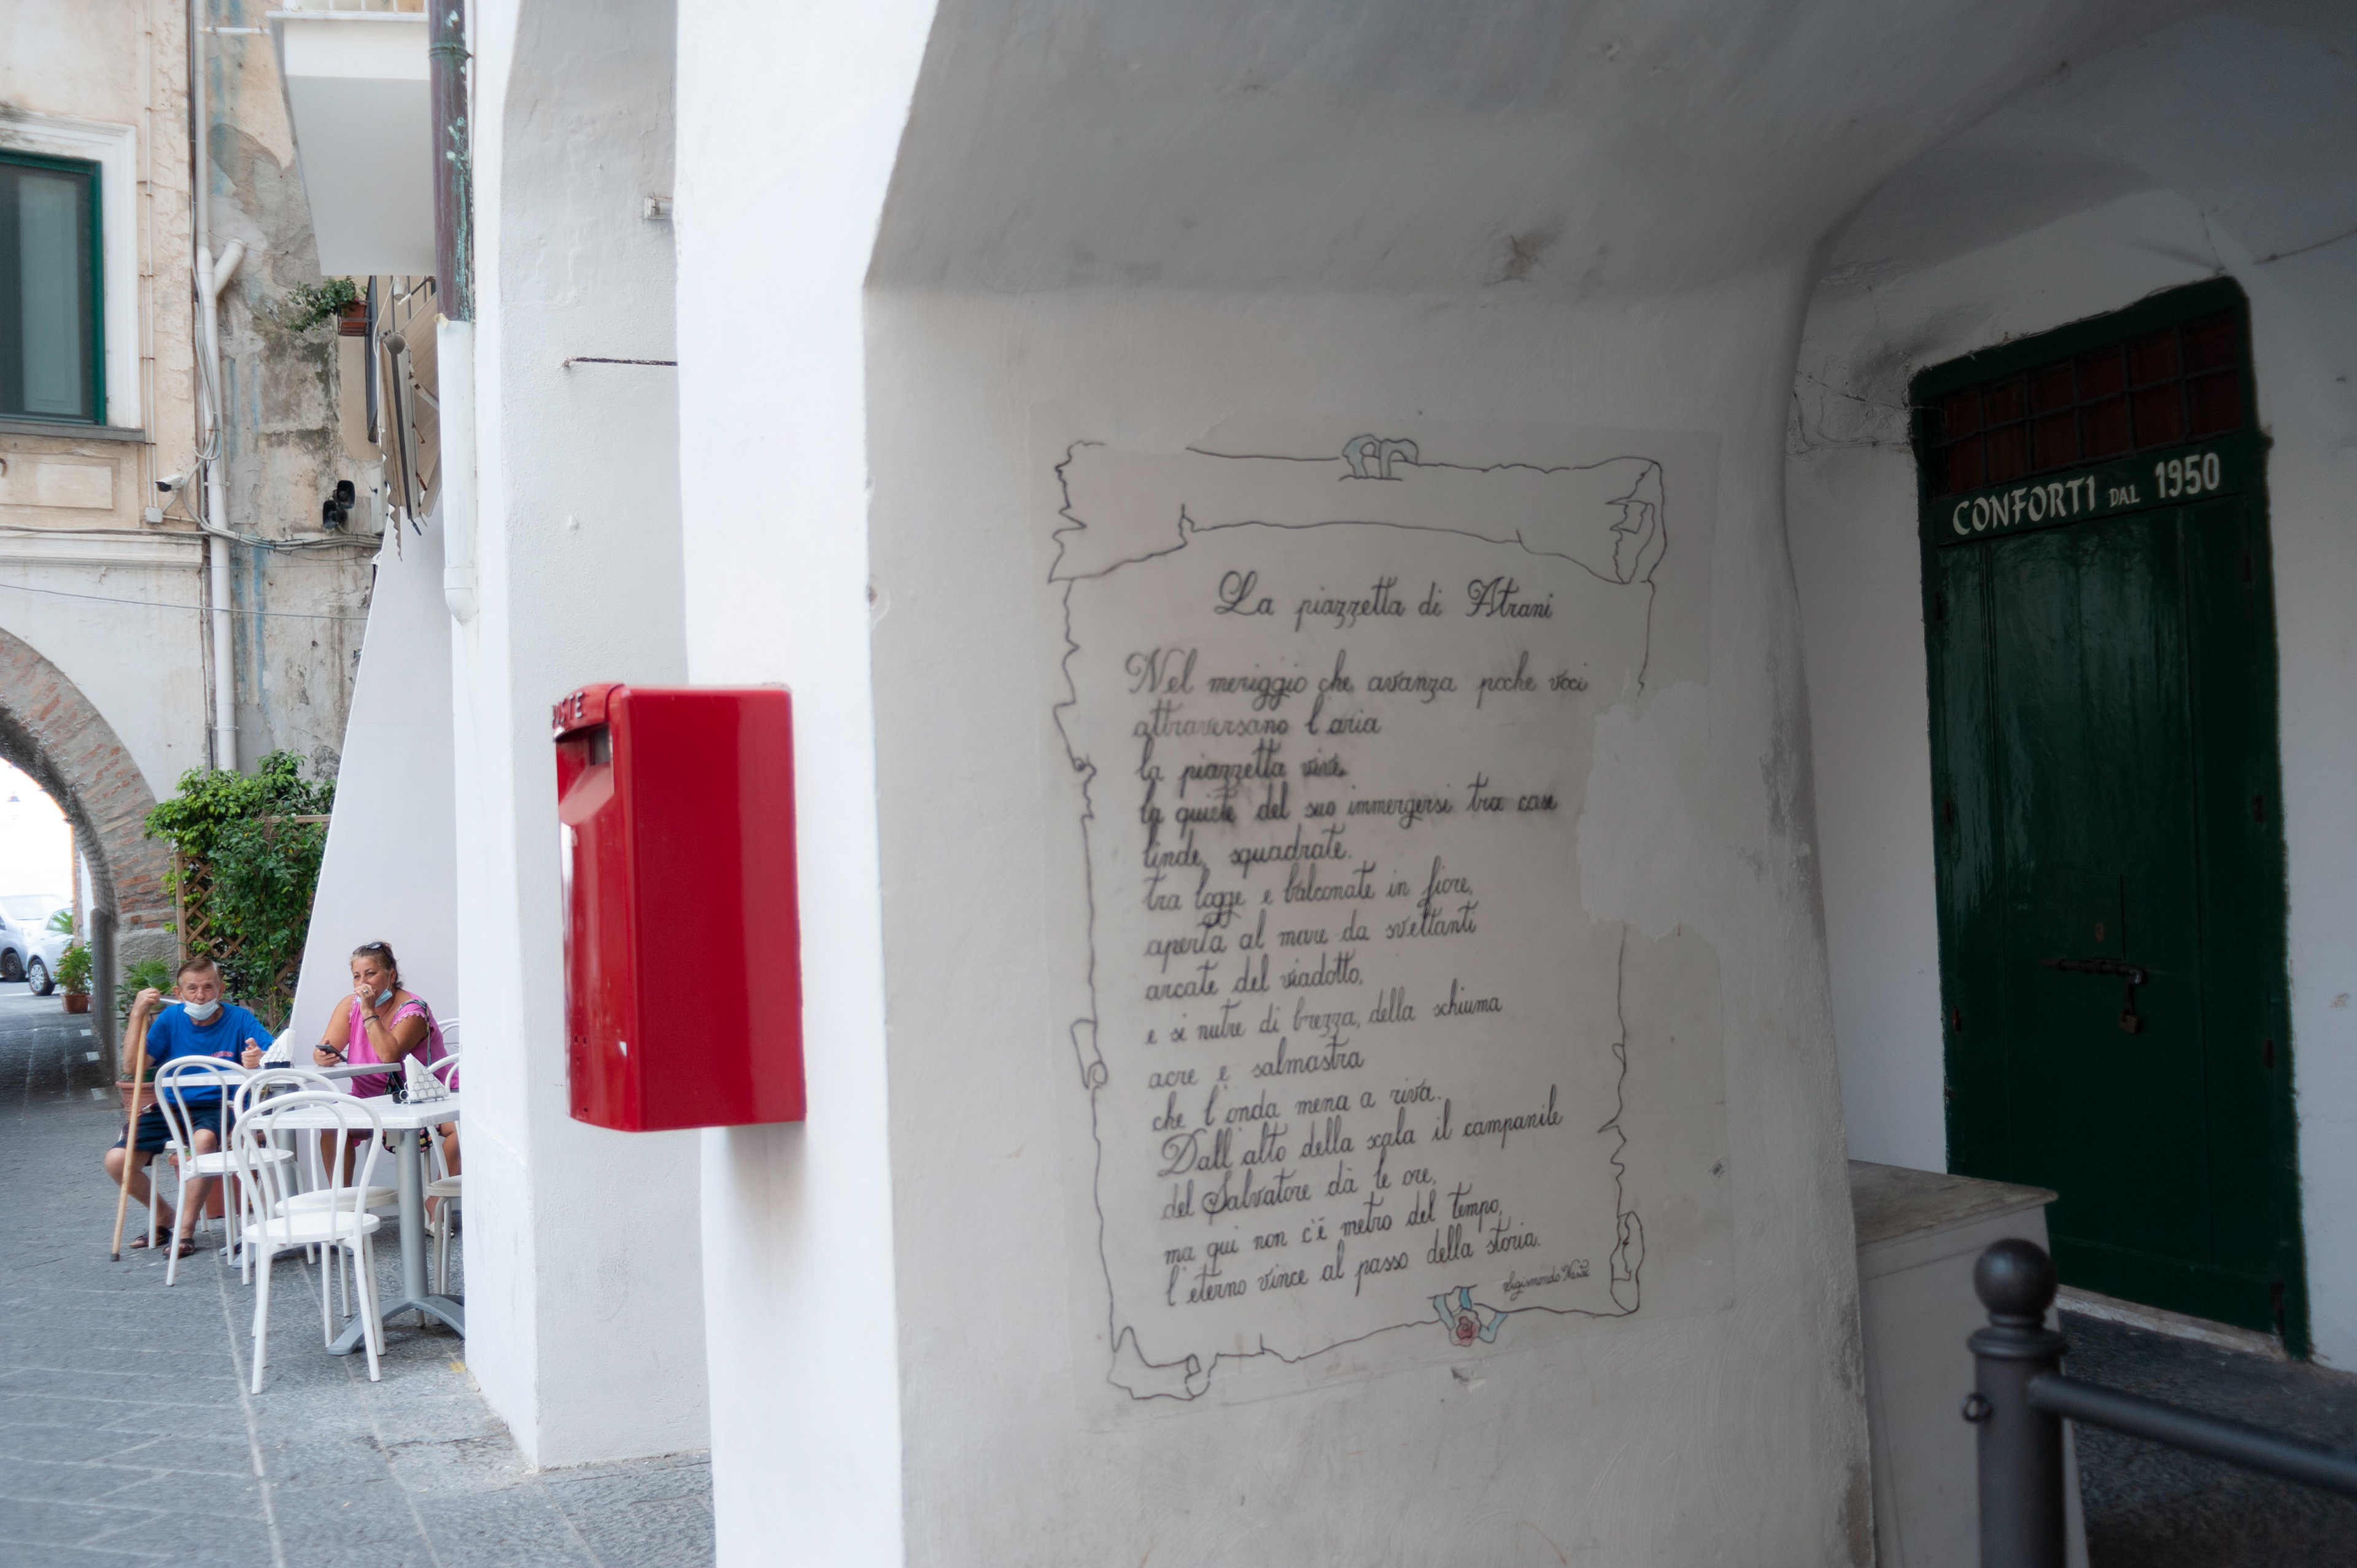 CONFORTI DAL 1950
La piazzetta di Atrani
Nel meriggio che avanza poche voci
attraversano l'aria
la piazzetta vive,
la quiete del suo immergersi tra case
linde, squadrate.
tra logge e balconate in fiore,
aperta al mare da svettanti
arcate del viadotto,
e si nutre di brezza, della schiuma
acre e salmastra
che l'onda mena a riva.
Dall'alto della scala il campanile
del Salvatore dà le ore,
ma qui non c'è metro del tempo,
l'eterno vince al passo della storia.
Sigismondo